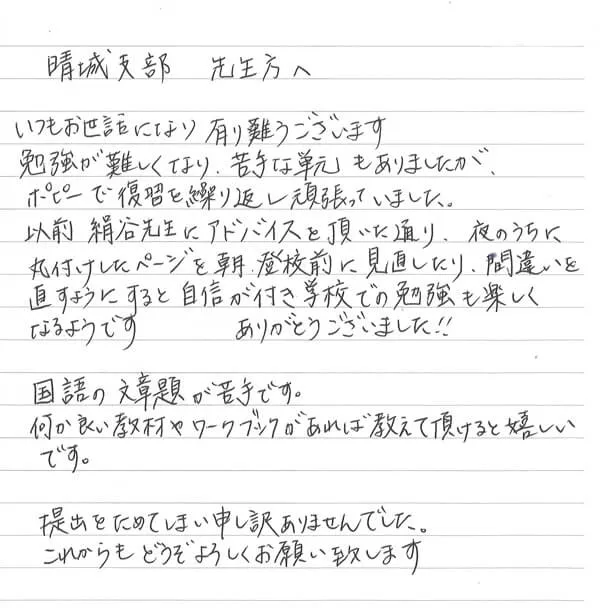 晴城支部　先生方へ
いつもお世話になり 有り難うございます
勉強が難しくなり、苦手な単元もありましたが、
ポピーで復習を繰り返し頑張っていました。
以前 絹谷先生にアドバイスを頂いた通り、夜のうちに
丸付けしたページを朝、登校前に見直したり、間違いを
直すようにすると自信が付き学校での勉強も楽しく
なるようです　ありがとうございました!!
国語の文章題が苦手です。
何か良い教材やワークブックがあれば教えて頂けると嬉しい
です。
提出をためてしまい申し訳ありませんでした。
これからもどうぞよろしくお願い致します